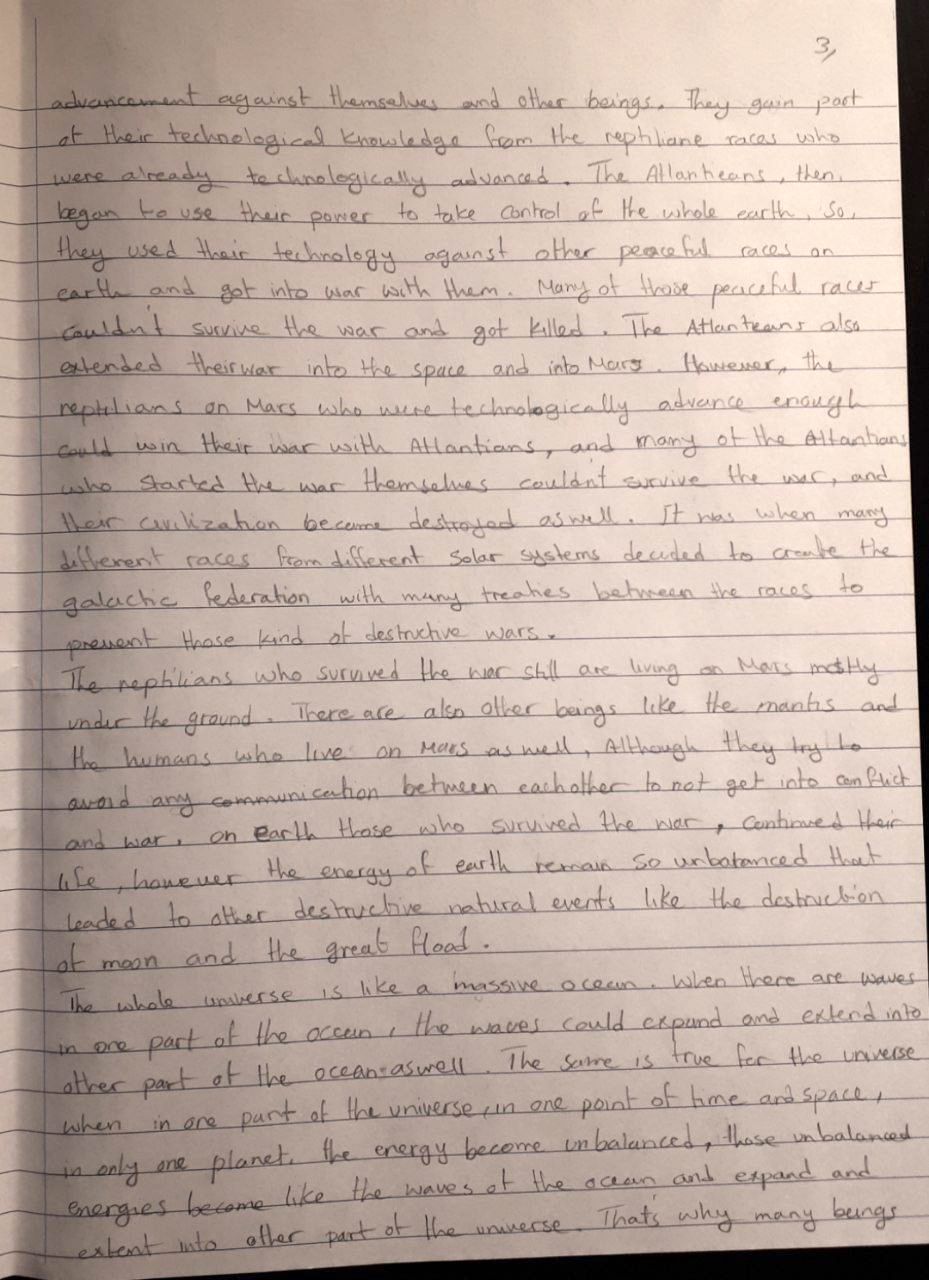 3,
advancement against themselves and other beings. They gain part
of their technological knowledge from the reptiliane races who
were already technologically advanced. The Atlanteans, then,
began to use their power to take control of the whole earth, so,
they used their technology against other peaceful races on
earth and got into war with them. Many of those peaceful races
couldn't survive the war and got killed. The Atlanteans also
extended their war into the space and into Mars. However, the
reptilians on Mars who were technologically advance enough
could win their war with Atlantians, and many of the Atlantians
who started the war themselves couldn't survive the war, and
their civilization become destroyed aswell. It was when many
different races from different solar systems decided to create the
galactic federation with many treaties between the races to
prevent those kind of destructive wars.
The reptilians who survived the war still are living on Mars mostly
under the ground. There are also other beings like the mantis and
the humans who live on Mars as well, Although they try to
avoid any communication between eachother to not get into conflict
and war. on Earth those who survived the war, continued their
life, however the energy of earth remain so unbalanced that
leaded to other destructive natural events like the destruction
of moon and the great flood.
The whole universe is like a massive ocean. When there are waves
in one part of the ocean, the waves could expand and extend into
other part of the ocean aswell. The same is true for the universe
when in one part of the universe, in one point of time and space,
in only one planet, the energy become unbalanced, those unbalanced
energies become like the waves of the ocean and expand and
extent into other part of the universe. That's why many beings